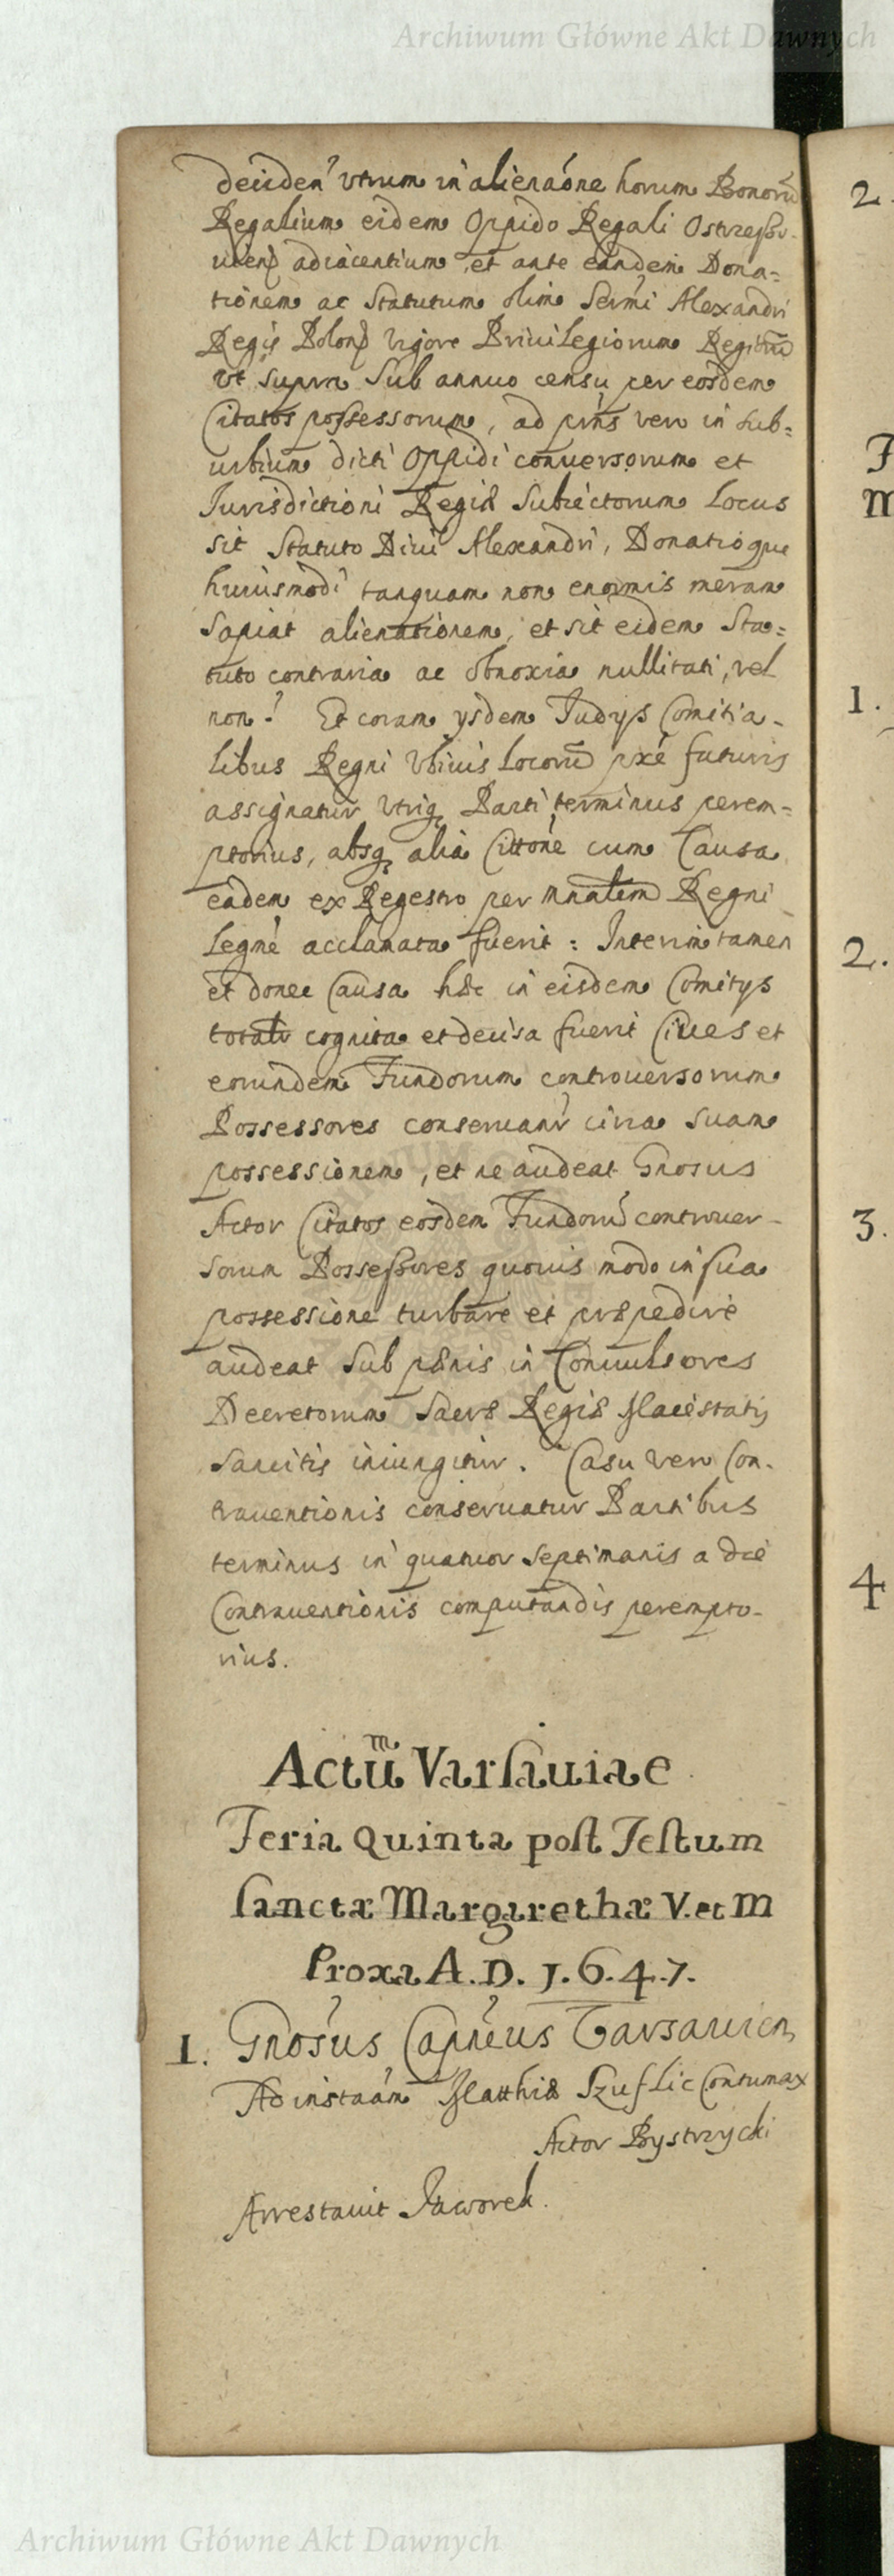 Archiwum Główne Akt Dawnych
deciden' vtrum in alienaóne horum Bonorũ
Regalium eidem Oppido Regali Ostrzeßo-
uien adiacentium et ante eandem Dona=
tionem ac Statutum olim Sermi Alexandri
Regis Polon Vigore Priuilegiorum Regiorũ
vt supra Sub annuo censu per eosdem
Citatos possessorum, ad prńs vero in sub=
urbium dicti Oppidi conuersorum et
Jurisdictioni Regiæ Subiectorum Locus
sit Statuto Diui Alexandri, Donatioque
huiusmodi tanquam non enormis meram
Sapiat alienationem, et sit eidem Sta=
tuto contraria ac obnoxia nullitati, vel
non? Et coram ysdem Judys Comitia-
libus Regni Vbiuis Locorũ pxé futuris
assignatur Vtriq Parti terminus perem=
ptorius, absq alia Cittone cum Causa
eadem ex Regestro per Mnalem Regni
Legmé acclamata fuerit: Interim tamen
et donec Causa hæc in eisdem Comitys
totalr cognita et decisa fuerit Ciues et
eorundem Fundorum controuersorum
Possessores conseruanr circa Suam
possessionem, et ne audeat Gnosus
Actor Citatos eosdem Fundorũ controuer-
sorum Posseßores quouis modo in sua
possessione turbare et præpedire
audeat Sub pænis in Conuulsores
Decretorum Sacræ Regiæ Maiestatis
Sancitis iniungitur. Casu vero Con-
trauentionis conseruatur Partibus
terminus in quatuor Septimanis a die
Contrauentionis computandis perempto-
rius.
Actũm Varsauiae
Feria Quinta post Festum
sanctæ Margarethæ V. et M
Proxa A. D. 1. 6. 4. 7.
1. Gnosus Capneus Tarsauien
Ad instaam Matthiæ Szuflic Contumax
Actor Bystrzycki
Arrestauit Jaworek.
2.
1.
2.
3.
4
Archiwum Główne Akt Dawnych